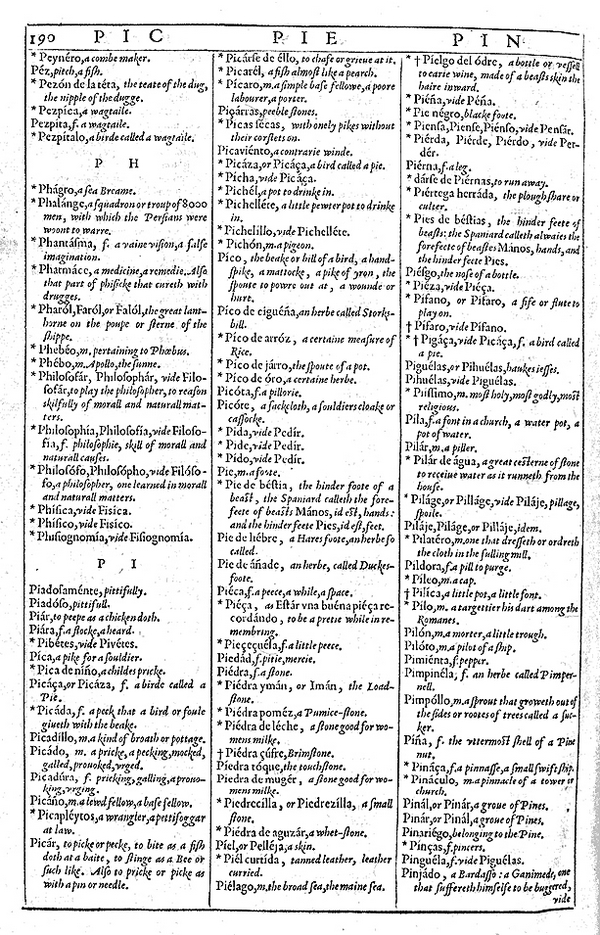 190 PIC PIE PIN
* Peynéro, a combe maker.
Péz, pitch, a fish.
* Pezón de la téta, the teate of the dug,
the nipple of the dugge.
* Pezpíca, a wagtaile.
Pezpíta, f. a wagtaile.
* Pezpítalo, a birde called a wagtaile.
P H
* Phágro, a sea Breame.
* Phalánge, a squadron or troup of 8000
men, with which the Persians were
woont to warre.
* Phantásma, f. a vaine vision, a false
imagination.
* Pharmáce, a medicine, a remedie. Also
that part of phisicke that cureth with
drugges.
* Pharól, Faról, or Falól, the great lant-
horne on the poupe or sterne of the
shippe.
* Phebéo, m. pertaining to Phœbus.
* Phébo, m. Apollo, the sunne.
* Philosofár, Philosophár, vide Filo-
sofár, to play the philosopher, to reason
skilfully of morall and naturall mat-
ters.
* Philosophía, Philosofía, vide Filoso-
fia, f. philosophie, skill of morall and
naturall causes.
* Philosófo, Philosópho, vide Filóso-
fo, a philosopher, one learned in morall
and naturall matters.
* Phísica, vide Fisica.
* Phísico, vide Fisico.
* Phisiognomía, vide Fisiognomia.
P I
Piadosaménte, pittifully.
Piadóso, pittifull.
Piár, to peepe as a chicken doth.
Piára, f. a flocke, a heard.
* Pibétes, vide Pivétes.
Píca, a pike for a souldier.
* Pica de níño, a childes pricke.
Picáça, or Picáza, f. a birde called a
Pie.
* Picáda, f. a peck that a bird or foule
giueth with the beake.
Picadíllo, m. a kind of broath or pottage.
Picádo, m. a pricke, a pecking, mocked,
galled, prouoked, vrged.
Picadúra, f. pricking, galling, a prouo-
king, vrging.
Picáño, m. a lewd fellow, a base fellow.
* Picapléytos, a wrangler, a pettifoggar
at law.
Picár, to picke or pecke, to bite as a fish
doth at a baite, to stinge as a Bee or
such like. Also to pricke or picke as
with a pin or needle.
* Picárse de éllo, to chafe or grieue at it.
* Picarél, a fish almost like a pearch.
* Pícaro, m. a simple base fellowe, a poore
labourer, a porter.
Piçárras, peeble stones.
* Picas sécas, with onely pikes without
their corslets on.
Picaviénto, a contrarie winde.
* Picáza, or Picáça, a bird called a pie.
* Pícha, vide Picáça.
* Pichél, a pot to drinke in.
* Pichelléte, a little pewter pot to drinke
in.
* Pichelíllo, vide Pichelléte.
* Pichón, m. a pigeon.
Píco, the beake or bill of a bird, a hand-
spike, a mattocke, a pike of yron, the
spoute to powre out at, a wounde or
hurt.
Píco de cigueña, an herbe called Storks-
bill.
* Píco de arróz, a certaine measure of
Rice.
* Píco de járro, the spoute of a pot.
* Píco de óro, a certaine herbe.
Picóta, f. a pillorie.
Picóte, a sackcloth, a souldiers cloake or
cassocke.
* Pida, vide Pedír.
* Pide, vide Pedír.
* Pido, vide Pedír.
Pie, m. a foote.
* Pie de béstia, the hinder foote of a
beast, the Spaniard calleth the fore-
feete of beasts Mános, id est, hands:
and the hinder feete Pies, id est, feet.
Pie de liébre, a Hares foote, an herbe so
called.
Pie de ánade, an herbe, called Duckes-
foote.
Piéca, f. a peece, a while, a space.
* Piéça, as Estár vna buéna piéça re-
cordándo, to be a pretie while in re-
membring.
* Pieçeçuéla, f. a little peece.
Piedád, f. pitie, mercie.
Piédra, f. a stone.
* Piédra ymán, or Imán, the Load-
stone.
* Piédra poméz, a Pumice-stone.
* Piédra de léche, a stone good for wo-
mens milke.
† Piédra çúfre, Brimstone.
* Piedra tóque, the touchstone.
* Piedra de mugér, a stone good for wo-
mens milke.
* Piedrecílla, or Piedrezílla, a small
stone.
* Piédra de aguzár, a whet-stone.
Píel, or Pelléja, a skin.
* Piél curtída, tanned leather, leather
curried.
Piélago, m. the broad sea, the maine sea.
* † Pielgo del ódre, a bottle or vessell
to carie wine, made of a beasts skin the
haire inward.
* Piéña, vide Péña.
* Pie négro, blacke foote.
* Piensa, Piense, Piénso, vide Pensár.
* Piérda, Piérde, Piérdo, vide Per-
dér.
Piérna, f. a leg.
* dárse de Piérnas, to run away.
* Piértega herráda, the plough share or
culter.
* Pies de béstias, the hinder feete of
beasts: the Spaniard calleth alwaies the
forefeete of beastes Mános, hands, and
the hinder feete Pies.
Piésgo, the nose of a bottle.
* Piéza, vide Piéça.
* Pifano, or Pífaro, a fife or flute to
play on.
† Pífaro, vide Pífano.
* † Pigáça, vide Picáça, f. a bird called
a pie.
Piguélas, or Pihuélas, haukes iesses.
Pihuélas, vide Piguélas.
* Piíssimo, m. most holy, most godly, most
religious.
Píla, f. a font in a church, a water pot, a
pot of water.
Pilár, m. a piller.
* Pilár de água, a great cesterne of stone
to receiue water as it runneth from the
house.
* Piláge, or Pilláge, vide Piláje, pillage,
spoile.
Piláje, Piláge, or Pilláje, idem.
* Pilatéro, m. one that dresseth or ordreth
the cloth in the fulling mill.
Píldora, f. a pill to purge.
* Píleo, m. a cap.
† Pilíca, a little pot, a little font.
* Pílo, m. a targettier his dart among the
Romanes.
Pilón, m. a morter, a little trough.
Pilóto, m. a pilot of a ship.
Pimiénta, f. pepper.
Pimpinéla, f. an herbe called Pimper-
nell.
Pimpóllo, m. a sprout that groweth out of
the sides or rootes of trees called a suc-
ker.
Píña, f. the vttermost shell of a Pine
nut.
* Pináça, f. a pinnasse, a small swift ship.
* Pináculo, m. a pinnacle of a tower or
church.
Pinál, or Pinár, a groue of Pines.
Pinár, or Pinál, a groue of Pines.
Pinariégo, belonging to the Pine.
* Pínças, f. pincers.
Pinguéla, f. vide Piguélas.
Pinjádo, a Bardasso: a Ganimede, one
that suffereth himselfe to be buggered,
vide